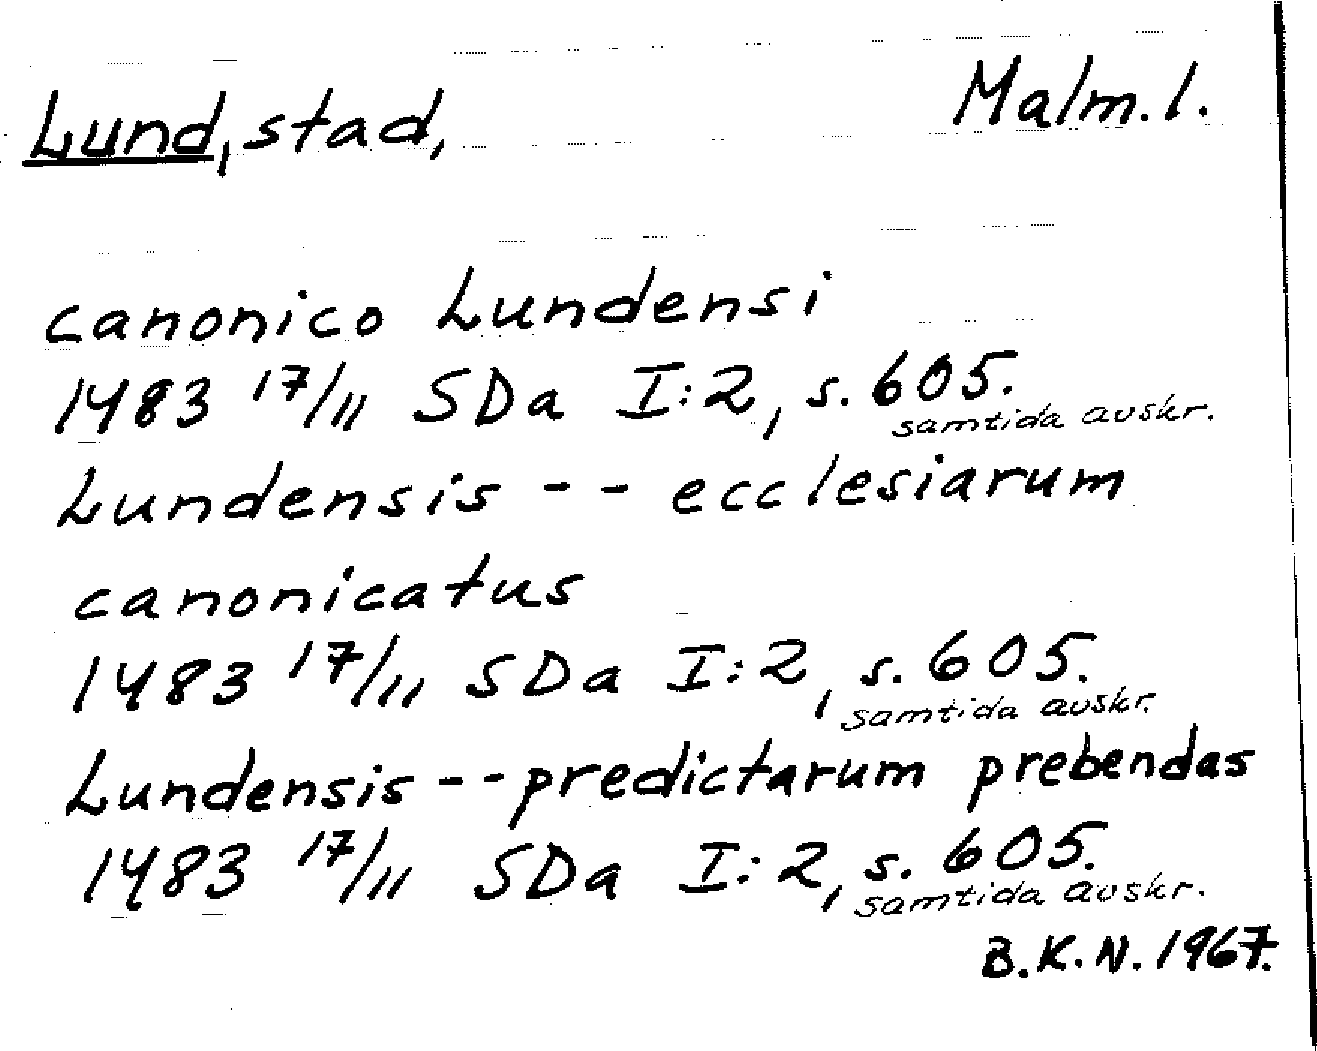 Lund, stad, Malm. l.
canonico Lundensi
1483 17/11 SDa I:2, s. 605.
samtida avskr.
Lundensis -- ecclesiarum
canonicatus
1483 17/11 SDa I:2, s. 605.
samtida avskr.
Lundensis -- predictarum prebendas
1483 17/11 SDa I:2, s. 605.
samtida avskr.
B.K.N. 1967.